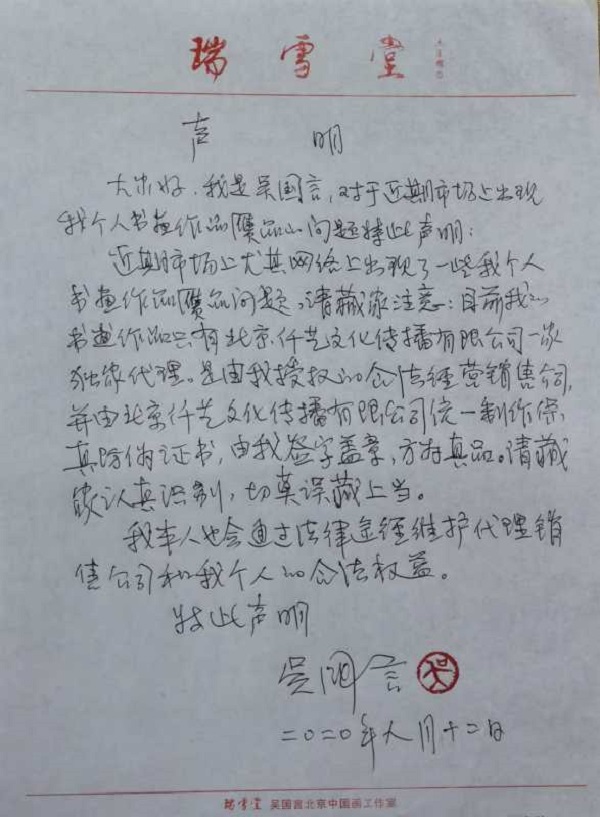 瑞雪堂
声明
大家好,我是吴国言,对于近期市场上出现
我个人书画作品赝品的问题特此声明:
近期市场上尤其网络上出现了一些我个人
书画作品赝品问题,请藏家注意:目前我的
书画作品只有北京仟艺文化传播有限公司一家
独家代理。是由我授权的合法经营销售公司,
并由北京仟艺文化传播有限公司统一制作保
真防伪证书,由我签字盖章,方存真品。请藏
家认真识别,切莫误藏上当。
我本人也会通过法律途径维护代理销
售公司和我个人的合法权益。
特此声明
吴国言
二〇二〇年八月十二日
瑞雪堂 吴国言北京中国画工作室